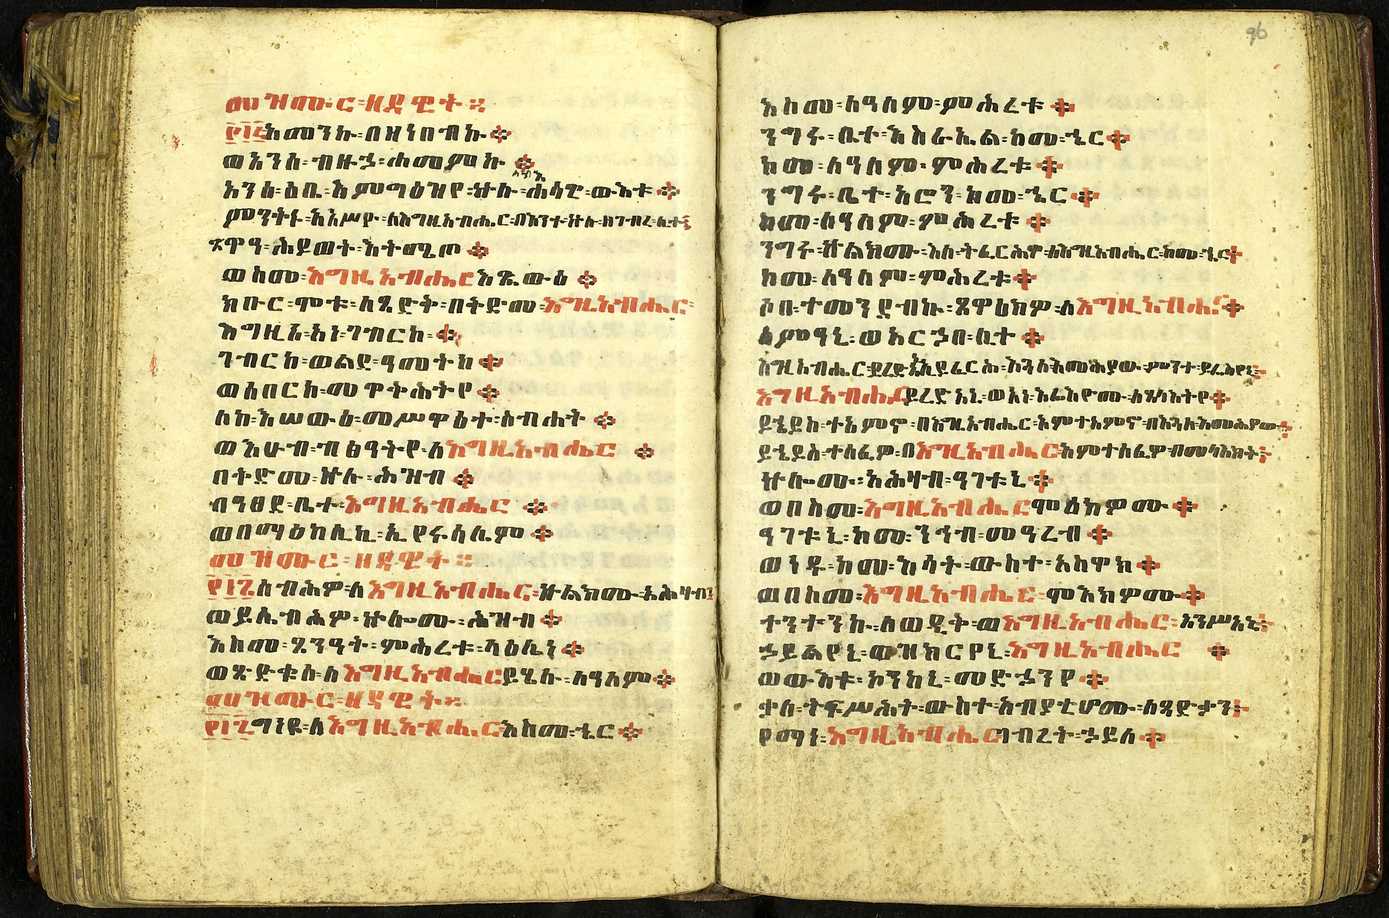 መዝሙር፡ዘዳዊት።
፻፲፭አመንኩ፡በዘነበብኩ።
ወአንሰ፡ብዙኃ፡ሐመምኩ።
አንሰ፡እቤ፡እምግዕዝየ፡ኵሉ፡ሐሳዊ፡ውእቱ።
ምንትኑ፡አአሥዮ፡ለእግዚአብሔር፡በእንተ፡ኵሉ፡ዘገብረ፡ሊተ።
ጽዋዓ፡ሕይወት፡እትሜጦ።
ወስመ፡እግዚአብሔር፡እጼውዕ።
ክቡር፡ሞቱ፡ለጻድቅ፡በቅድመ፡እግዚአብሔር፡
እግዚኦ፡አነ፡ገብርከ።
ገብርከ፡ወልደ፡ዓመትከ።
ወሰበርከ፡መዋቅሕትየ።
ለከ፡እሠውዕ፡መሥዋዕተ፡ስብሐት።
ወእሁብ፡ብፅዓትየ፡ለእግዚአብሔር።
በቅድመ፡ኵሉ፡ሕዝብ።
በዓፀደ፡ቤተ፡እግዚአብሔር።
ወበማዕከሌኪ፡ኢየሩሳሌም።
መዝሙር፡ዘዳዊት።
፻፲፮ሰብሕዎ፡ለእግዚአብሔር፡ኵልክሙ፡አሕዛብ።
ወይሴብሕዎ፡ኵሎሙ፡ሕዝብ።
እስመ፡ጸንዓት፡ምሕረቱ፡ላዕሌነ።
ወጽድቁሰ፡ለእግዚአብሔር፡ይሄሉ፡ለዓለም።
መዝሙር፡ዘዳዊት።
፻፲፯ግነዩ፡ለእግዚአብሔር፡እስመ፡ኄር።
96
እስመ፡ለዓለም፡ምሕረቱ።
ንግሩ፡ቤተ፡እስራኤል፡ከመ፡ኄር።
ከመ፡ለዓለም፡ምሕረቱ።
ንግሩ፡ቤተ፡አሮን፡ከመ፡ኄር።
ከመ፡ለዓለም፡ምሕረቱ።
ንግሩ፡ኵልክሙ፡እለ፡ትፈርሕዎ፡ለእግዚአብሔር፡ከመ፡ኄር።
ከመ፡ለዓለም፡ምሕረቱ።
ሶበ፡ተመንደብኩ፡ጸዋዕክዎ፡ለእግዚአብሔር።
ሰምዓኒ፡ወአርኃበ፡ሊተ።
እግዚአብሔር፡ይረድአኒ፡ኢይፈርህ፡እጓለ፡እመሕያው፡ምንተ፡ይሬስየኒ።
እግዚአብሔር፡ይረድአኒ፡ወአነ፡እሬእዮሙ፡ለጸላእትየ።
ይኄይስ፡ተአምኖ፡በእግዚአብሔር፡እምተአምኖ፡በእጓለ፡እመሕያው።
ይኄይስ፡ተሰፈዎ፡በእግዚአብሔር፡እምተሰፈዎ፡በመላእክት።
ኵሎሙ፡አሕዛብ፡ዓገቱኒ።
ወበስመ፡እግዚአብሔር፡ሞዕክዎሙ።
ዓገቱኒ፡ከመ፡ንኅብ፡መዓረብ።
ወነዱ፡ከመ፡እሳት፡ውስተ፡አስዋክ።
ወበስመ፡እግዚአብሔር፡ሞእክዎሙ።
ተንተንኩ፡ለወዲቅ፡ወእግዚአብሔር፡አንሥአኒ።
ኃይልየኒ፡ወዝክርየኒ፡እግዚአብሔር።
ወውእቱ፡ኮንከኒ፡መድኃንየ።
ቃለ፡ትፍሥሕት፡ውስተ፡አብያቲሆሙ፡ለጻድቃን።
የማነ፡እግዚአብሔር፡ገብረት፡ኃይለ።